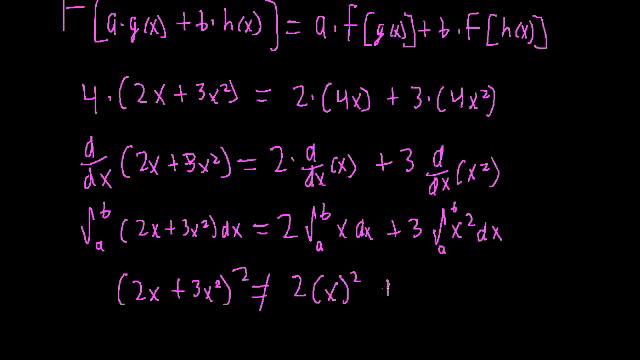 F[a·g(x) + b·h(x)] = a·F[g(x)] + b·F[h(x)]
4·(2x + 3x²) = 2·(4x) + 3·(4x²)
d/dx (2x + 3x²) = 2·d/dx (x) + 3 d/dx (x²)
∫ₐᵇ (2x + 3x²) dx = 2 ∫ₐᵇ x dx + 3 ∫ₐᵇ x² dx
(2x + 3x²)² ≠ 2(x)²